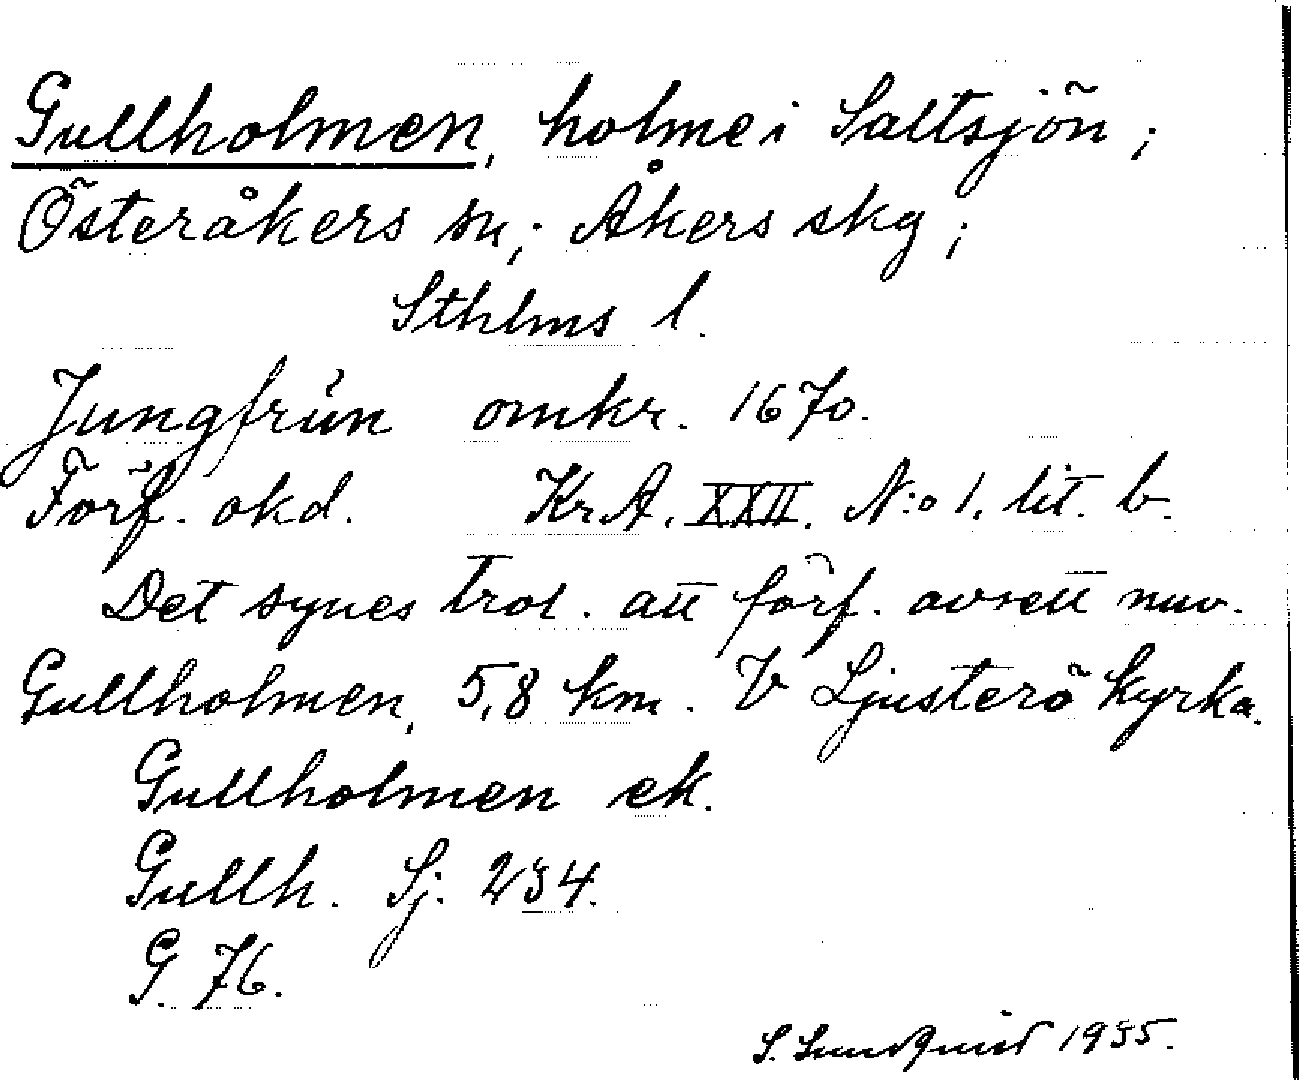 Gullholmen, holme i Saltsjön;
Österåkers sn; Åkers skg;
Sthlms l.
Jungfrün omkr. 1670.
Förf. okd. Kr.A. XXII. N:o 1. lit. b.
Det synes trol. att förf. avsett nuv.
Gullholmen, 5,8 km. V Ljusterö kyrka.
Gullholmen ek.
Gullh. Sj. 234.
G. 76.
S. Sundquist 1935.